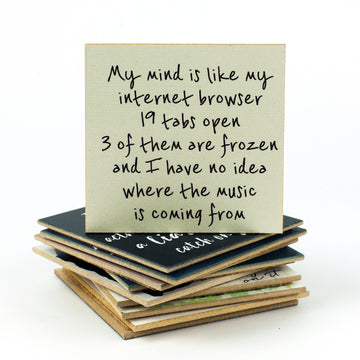 My mind is like my
internet browser
19 tabs open
3 of them are frozen
and I have no idea
where the music
is coming from
a lia
catch on